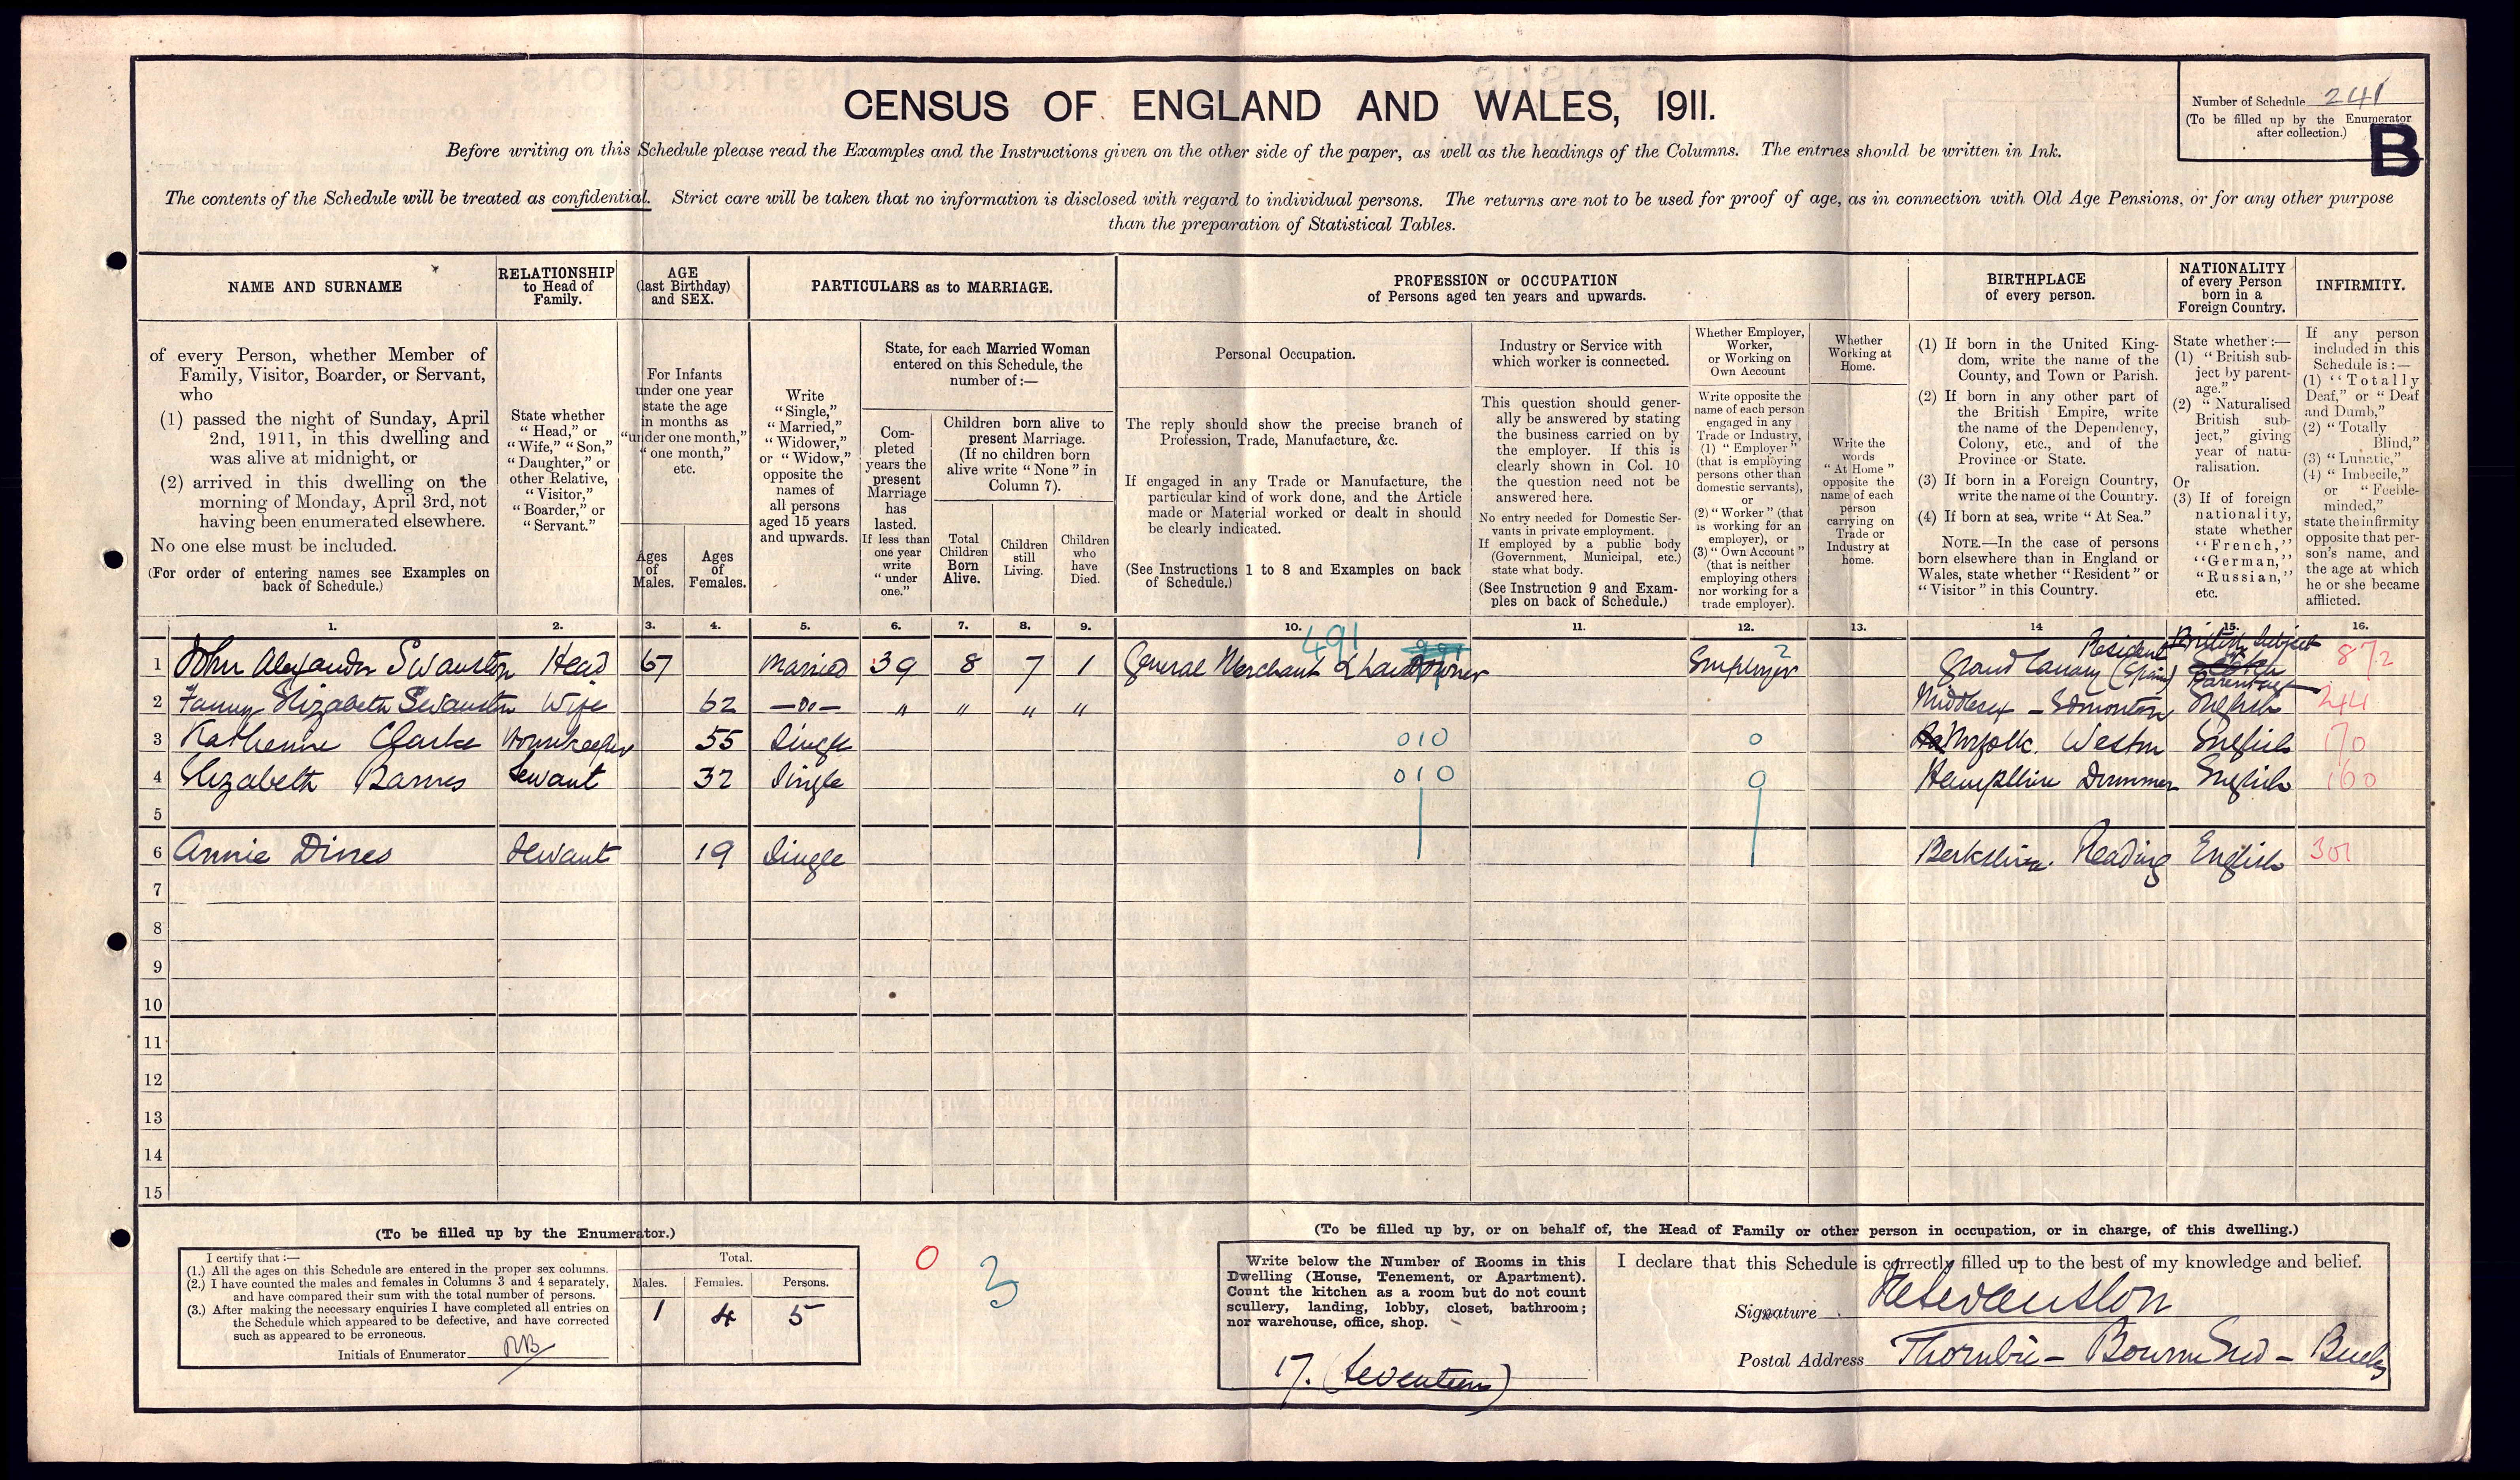 CENSUS OF ENGLAND AND WALES, 1911.
Number of Schedule 241
(To be filled up by the Enumerator
after collection.)
B
Before writing on this Schedule please read the Examples and the Instructions given on the other side of the paper, as well as the headings of the Columns. The entries should be written in Ink.
The contents of the Schedule will be treated as confidential. Strict care will be taken that no information is disclosed with regard to individual persons. The returns are not to be used for proof of age, as in connection with Old Age Pensions, or for any other purpose
than the preparation of Statistical Tables.
NAME AND SURNAME
of every Person, whether Member of
Family, Visitor, Boarder, or Servant,
who
(1) passed the night of Sunday, April
2nd, 1911, in this dwelling and
was alive at midnight, or
(2) arrived in this dwelling on the
morning of Monday, April 3rd, not
having been enumerated elsewhere.
No one else must be included.
(For order of entering names see Examples on
back of Schedule.)
RELATIONSHIP
to Head of
Family.
State whether
"Head," or
"Wife," "Son,"
"Daughter," or
other Relative,
"Visitor,"
"Boarder," or
"Servant."
AGE
(last Birthday)
and SEX.
For Infants
under one year
state the age
in months as
"under one month,"
"one month,"
etc.
Ages
of
Males.
Ages
of
Females.
PARTICULARS as to MARRIAGE.
Write
"Single,"
"Married,"
"Widower,"
or "Widow,"
opposite the
names of
all persons
aged 15 years
and upwards.
State, for each Married Woman
entered on this Schedule, the
number of :—
Com-
pleted
years the
present
Marriage
has
lasted.
If less than
one year
write
"under
one."
Children born alive to
present Marriage.
(If no children born
alive write "None" in
Column 7).
Total
Children
Born
Alive.
Children
still
Living.
Children
who
have
Died.
PROFESSION or OCCUPATION
of Persons aged ten years and upwards.
Personal Occupation.
The reply should show the precise branch of
Profession, Trade, Manufacture, &c.
If engaged in any Trade or Manufacture, the
particular kind of work done, and the Article
made or Material worked or dealt in should
be clearly indicated.
(See Instructions 1 to 8 and Examples on back
of Schedule.)
Industry or Service with
which worker is connected.
This question should gener-
ally be answered by stating
the business carried on by
the employer. If this is
clearly shown in Col. 10
the question need not be
answered here.
No entry needed for Domestic Ser-
vants in private employment.
If employed by a public body
(Government, Municipal, etc.)
state what body.
(See Instruction 9 and Exam-
ples on back of Schedule.)
Whether Employer,
Worker,
or Working on
Own Account
Write opposite the
name of each person
engaged in any
Trade or Industry,
(1) "Employer"
(that is employing
persons other than
domestic servants),
or
(2) "Worker" (that
is working for an
employer), or
(3) "Own Account"
(that is neither
employing others
nor working for a
trade employer).
Whether
Working at
Home.
Write the
words
"At Home"
opposite the
name of each
person
carrying on
Trade or
Industry at
home.
BIRTHPLACE
of every person.
(1) If born in the United King-
dom, write the name of the
County, and Town or Parish.
(2) If born in any other part of
the British Empire, write
the name of the Dependency,
Colony, etc., and of the
Province or State.
(3) If born in a Foreign Country,
write the name of the Country.
(4) If born at sea, write "At Sea."
NOTE.—In the case of persons
born elsewhere than in England or
Wales, state whether "Resident" or
"Visitor" in this Country.
NATIONALITY
of every Person
born in a
Foreign Country.
State whether :—
(1) "British sub-
ject by parent-
age."
(2) "Naturalised
British sub-
ject," giving
year of natu-
ralisation.
Or
(3) If of foreign
nationality,
state whether
"French,"
"German,"
"Russian,"
etc.
INFIRMITY.
If any person
included in this
Schedule is :—
(1) "Totally
Deaf," or "Deaf
and Dumb,"
(2) "Totally
Blind,"
(3) "Lunatic,"
(4) "Imbecile,"
or "Feeble-
minded,"
state the infirmity
opposite that per-
son's name, and
the age at which
he or she became
afflicted.
1. 2. 3. 4. 5. 6. 7. 8. 9. 10. 11. 12. 13. 14 15. 16.
491
Resident British Subject
1 John Alexander Swanston Head 67 Married 39 8 7 1 General Merchant & Landowner Employer 2 Grand Canary (Spain) by Parentage 872
2 Fanny Elizabeth Swanston Wife 62 —Do— " " " " Middlesex — Edmonton English 244
3 Katherine Clarke Housekeeper 55 Single 010 0 Norfolk. Weston English 170
4 Elizabeth Barnes Servant 32 Single 010 0 Hampshire Dummer English 160
5
6 Annie Dines Servant 19 Single Berkshire. Reading English 301
7
8
9
10
11
12
13
14
15
(To be filled up by the Enumerator.)
I certify that :—
(1.) All the ages on this Schedule are entered in the proper sex columns.
(2.) I have counted the males and females in Columns 3 and 4 separately,
and have compared their sum with the total number of persons.
(3.) After making the necessary enquiries I have completed all entries on
the Schedule which appeared to be defective, and have corrected
such as appeared to be erroneous.
Initials of Enumerator
Total.
Males. Females. Persons.
1 4 5
0
3
(To be filled up by, or on behalf of, the Head of Family or other person in occupation, or in charge, of this dwelling.)
Write below the Number of Rooms in this
Dwelling (House, Tenement, or Apartment).
Count the kitchen as a room but do not count
scullery, landing, lobby, closet, bathroom;
nor warehouse, office, shop.
17. (Seventeen)
I declare that this Schedule is correctly filled up to the best of my knowledge and belief.
Signature Swanston
Postal Address Thornbie — Bourne End — Bucks